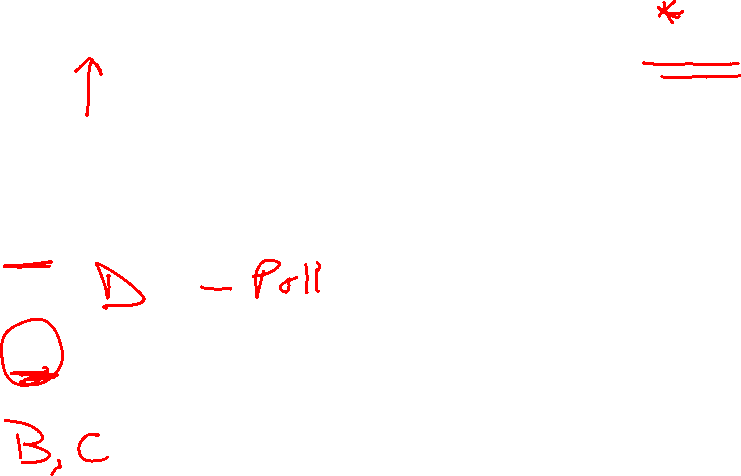 *
D - Poll
B, C